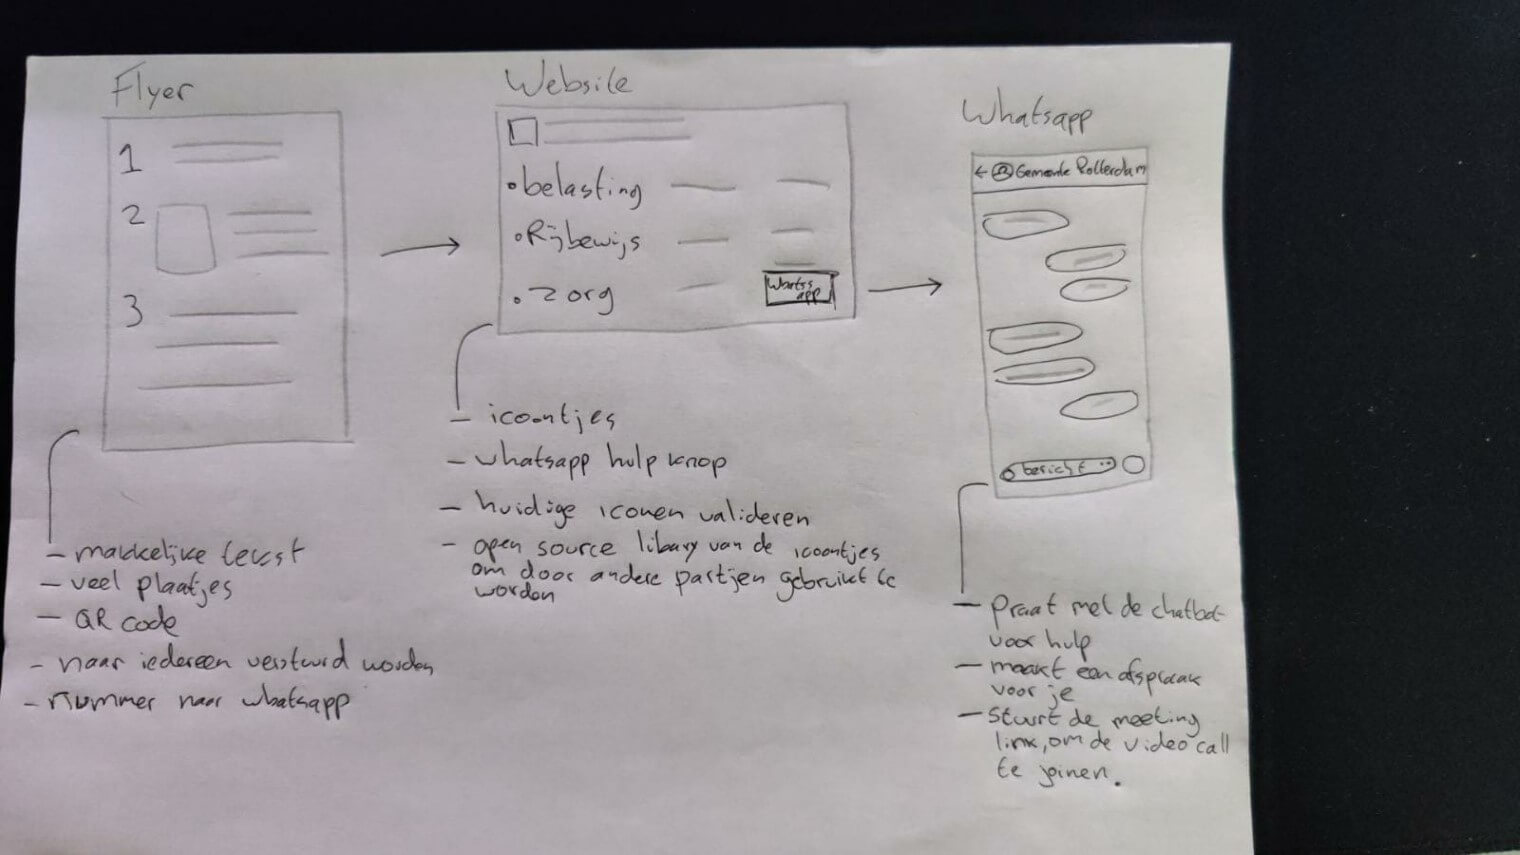 Flyer
1
2
3
- makkelijke tekst
- veel plaatjes
- QR code
- naar iedereen verstuurd worden
- nummer naar whatsapp
Website
• belasting
• Rijbewijs
• zorg
Whats
app
- icoontjes
- whatsapp hulp knop
- huidige iconen valideren
- open source libary van de icoontjes
om door andere partjen gebruikt te
worden
Whatsapp
← Gemeente Rotterdam
bericht ...
- praat met de chatbot
voor hulp
- maakt een afspraak
voor je
- stuurt de meeting
link, om de video call
te joinen.